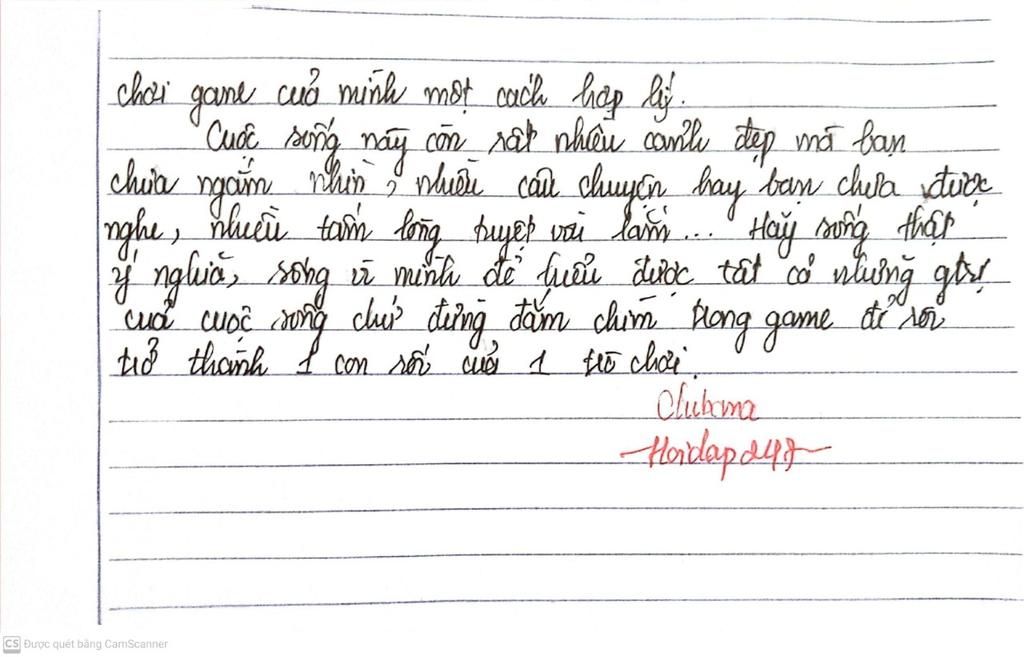 chơi game của mình một cách hợp lý.
Cuộc sống này còn rất nhiều cảnh đẹp mà bạn
chưa ngắm nhìn, nhiều câu chuyện hay bạn chưa được
nghe, nhiều tấm lòng tuyệt vời lắm... Hãy sống thật
ý nghĩa, sống vì mình để hiểu được tất cả những gtrị
của cuộc sống chứ đừng đắm chìm trong game để rồi
trở thành 1 con rối của 1 trò chơi.
Hoidap247
CS Được quét bằng CamScanner